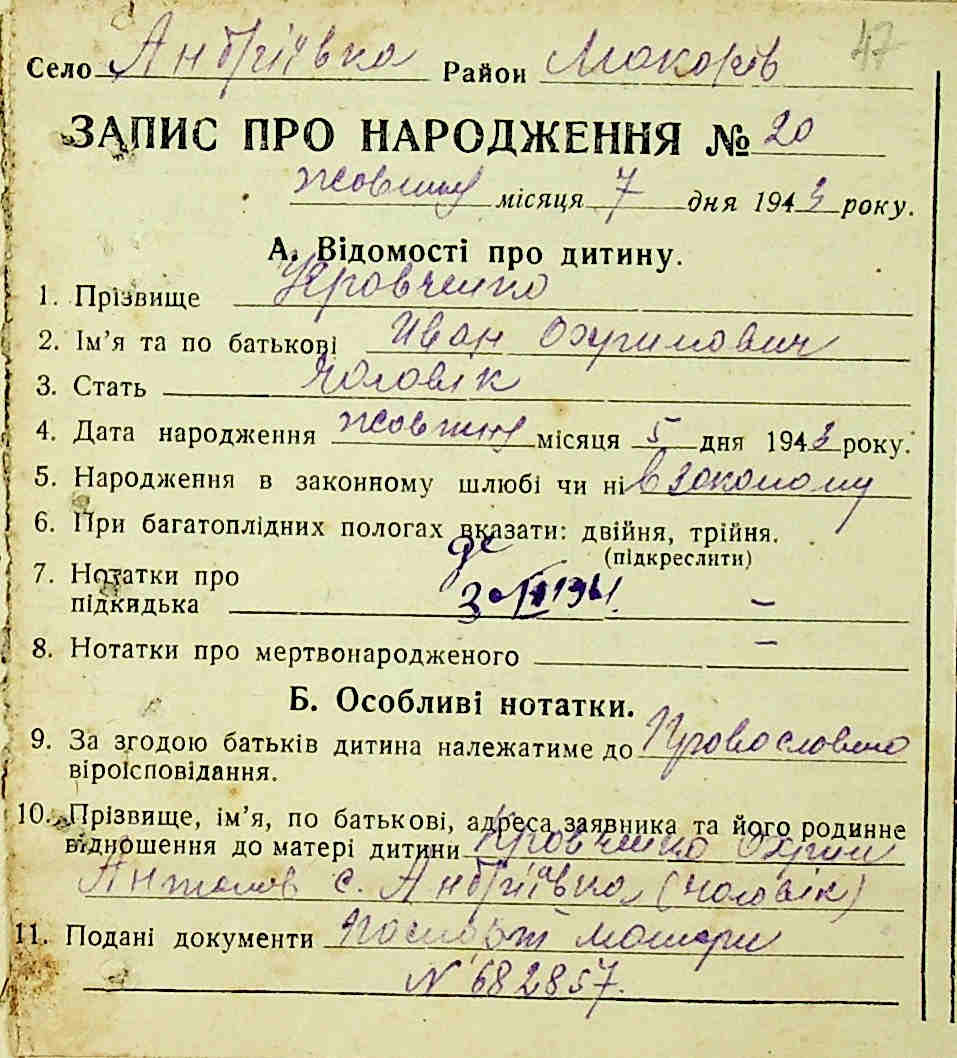 47
Село Андріївка Район Макарів
ЗАПИС ПРО НАРОДЖЕННЯ № 20
жовтня місяця 7 дня 1943 року.
А. Відомості про дитину.
1. Прізвище Кравченко
2. Ім'я та по батькові Иван Охримович
3. Стать чоловік
4. Дата народження жовтня місяця 5 дня 1943 року.
5. Народження в законному шлюбі чи ні в законому
6. При багатоплідних пологах вказати: двійня, трійня.
(підкреслити)
7. Нотатки про
підкидька –
8. Нотатки про мертвонародженого –
Б. Особливі нотатки.
9. За згодою батьків дитина належатиме до Православно
віроісповідання.
10. Прізвище, ім'я, по батькові, адреса заявника та його родинне
відношення до матері дитини Кравченко Охрим
с. Андріївка (чоловік)
11. Подані документи Паспорт матери
N 682857.